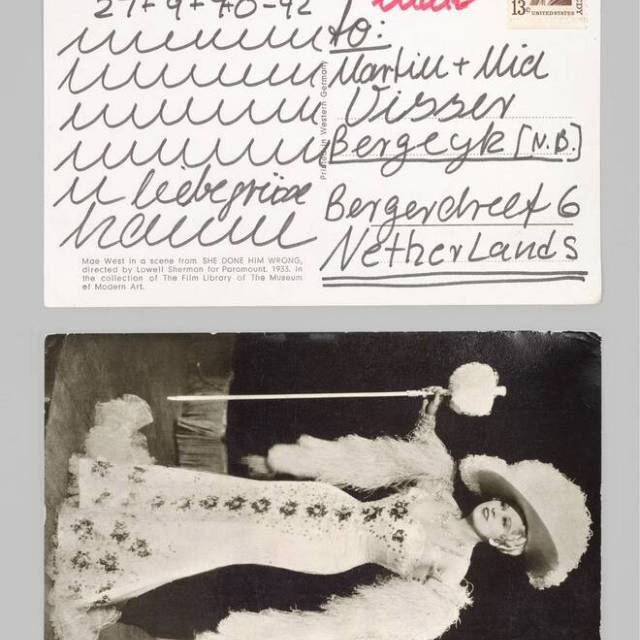 27+9+70-92
to:
Martin + Mia
Visser
Bergeyk [N.B.]
u liebegrüsse
Bergerdreef 6
hanne
NetherLands
Mae West in a scene from SHE DONE HIM WRONG,
directed by Lowell Sherman for Paramount, 1933. In
the collection of The Film Library of The Museum
of Modern Art.
Printed in Western Germany
13c
UNITED STATES